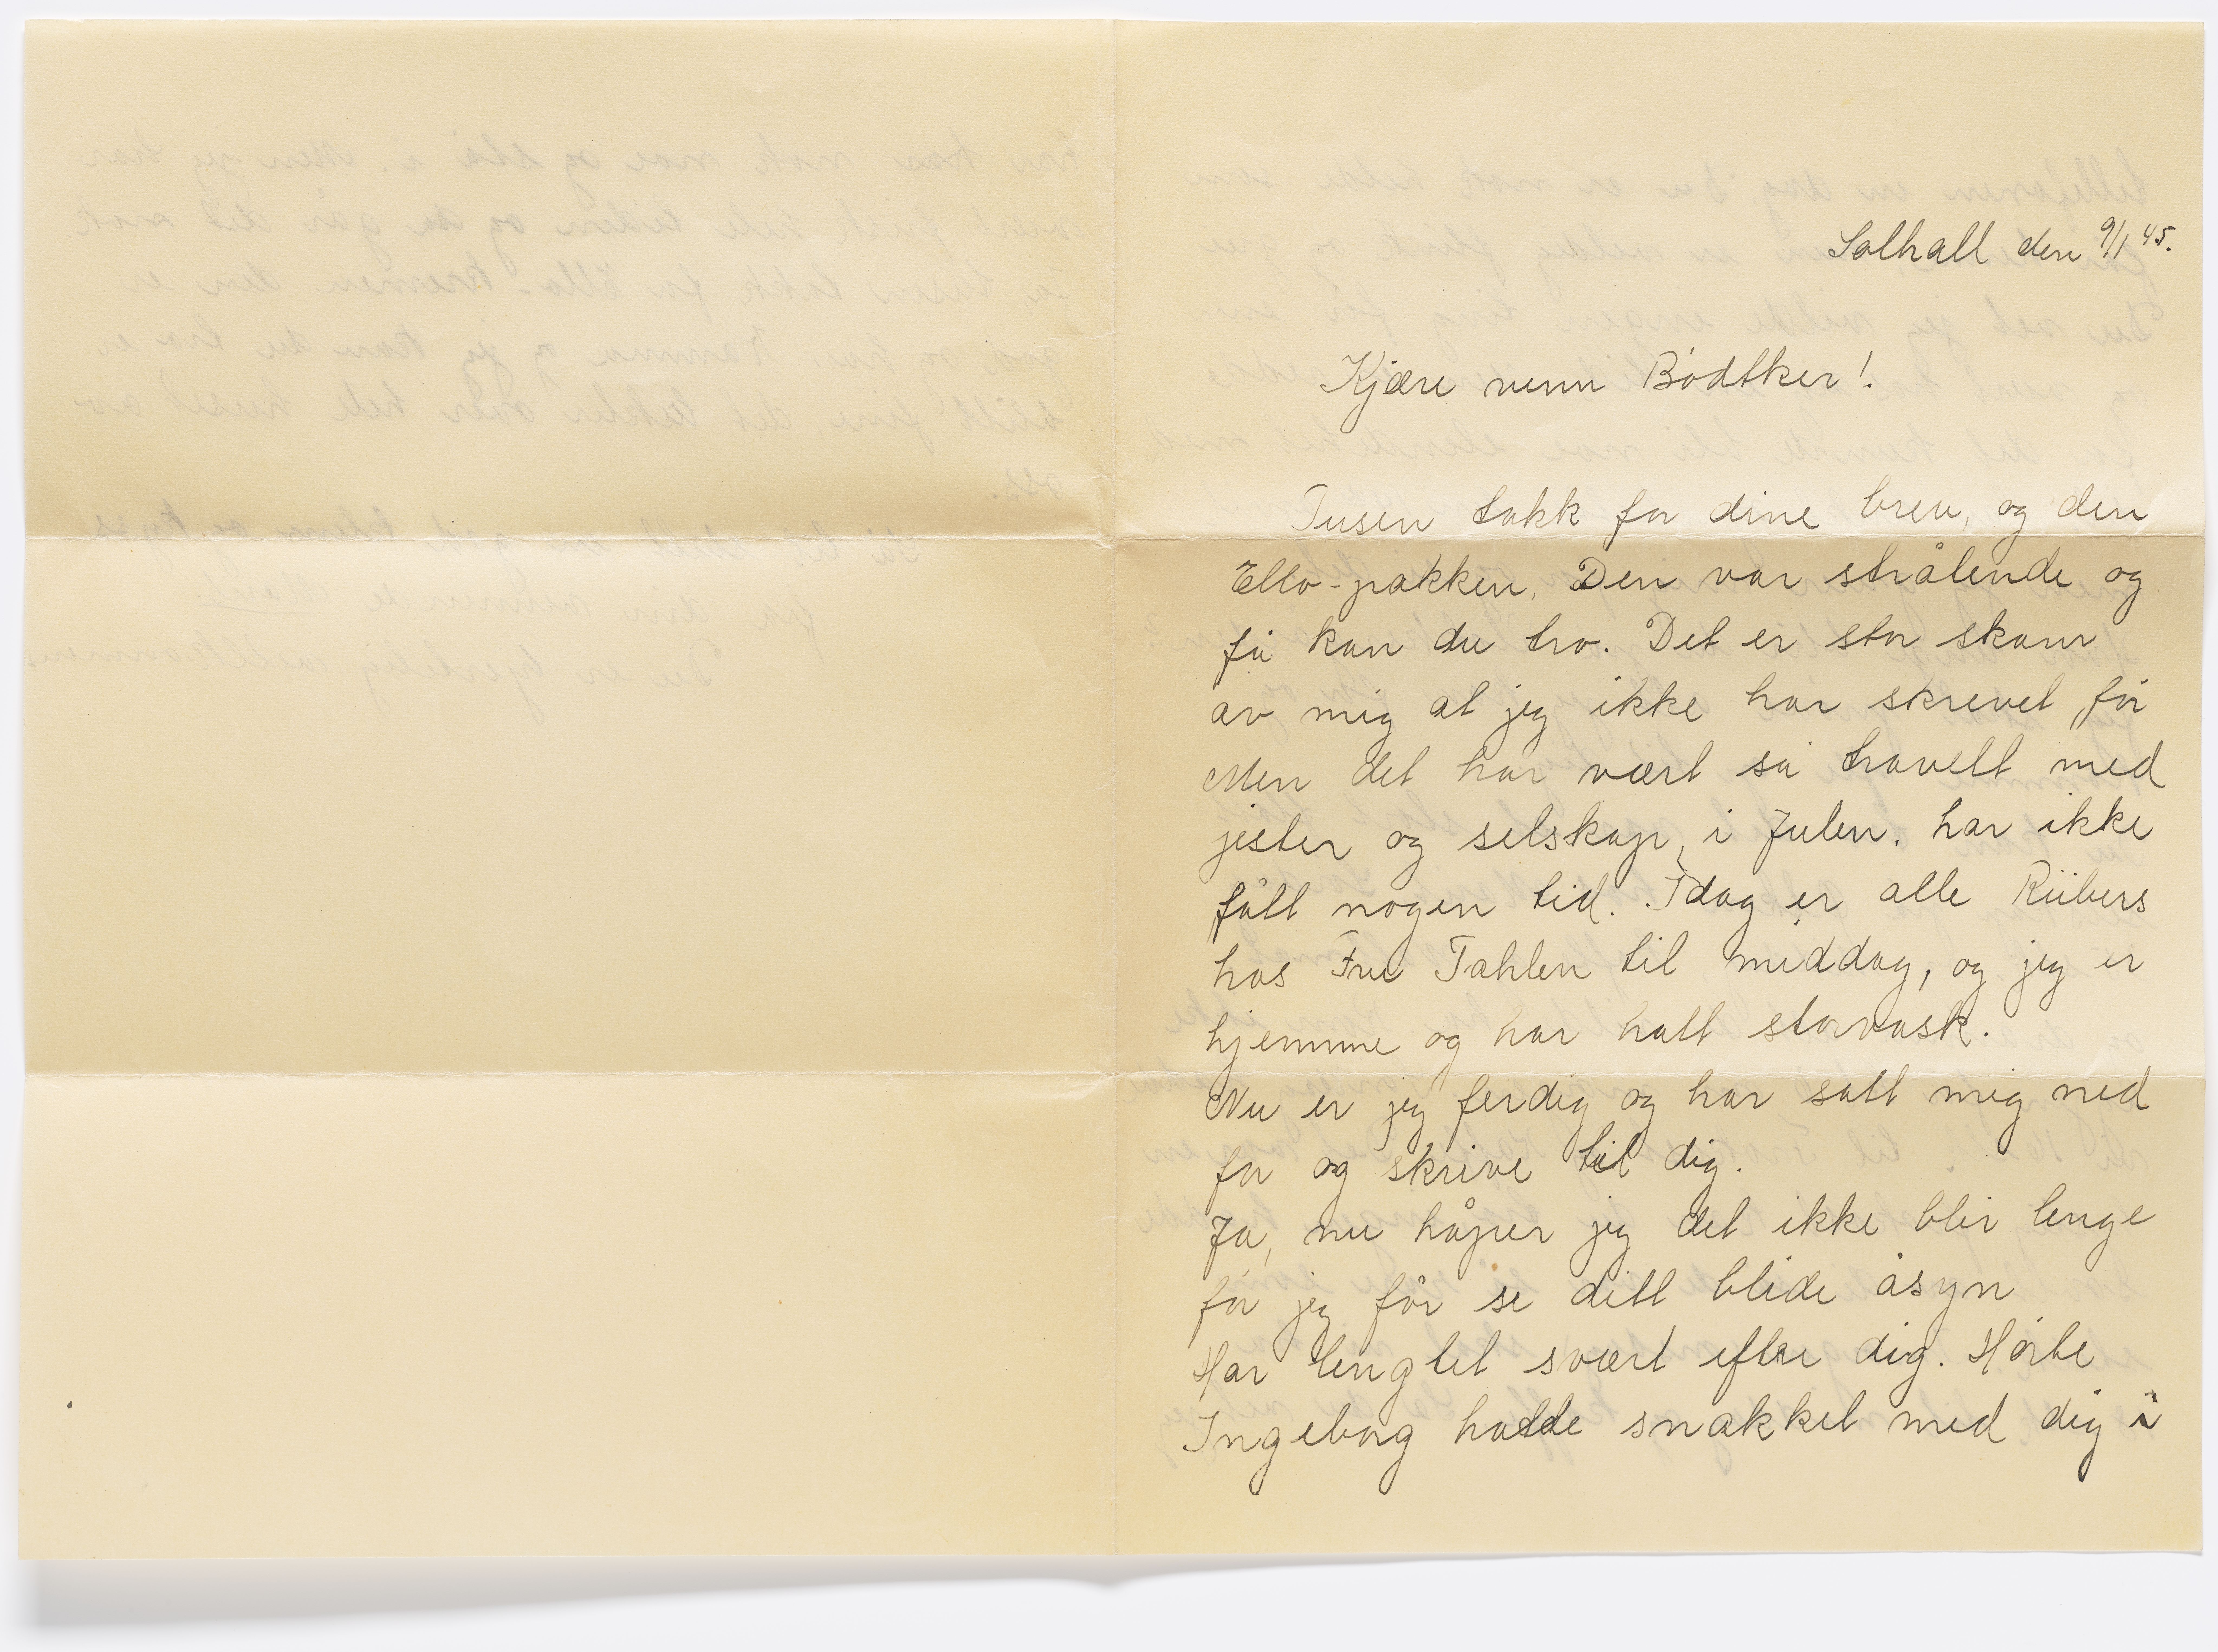 Solhall den 9/1 45.
Kjære venn Bödtker!
Tusen takk for dine brev, og den
Ello-pakken. Den var strålende og
få kan du tro. Det er stor skam
av mig at jeg ikke har skrevet för
Men det har vært så travelt med
jester og selskap, i Julen. har ikke
fått nogen tid. Idag er alle Riibers
hos Fru Tahlen til middag, og jeg er
hjemme og har hatt storvask.
Nu er jeg ferdig og har satt mig ned
for og skrive til dig.
Ja, nu håper jeg det ikke blir lenge
för jeg får se ditt blide åsyn
Har lengtet svært efter dig. Hörte
Ingeborg hadde snakket med dig i